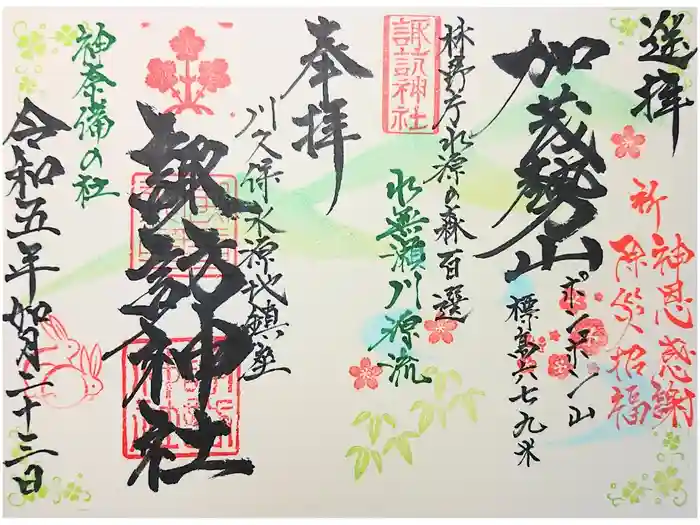 遥拝
祈
神恩感謝
除災招福
加茂勢山
ポンポン山
標高六七九米
林野庁水源の森百選
水無瀬川源流
諏訪神社
奉拝
川久保水源地鎮座
諏訪神社
神奈備の社
令和五年如月二十三日